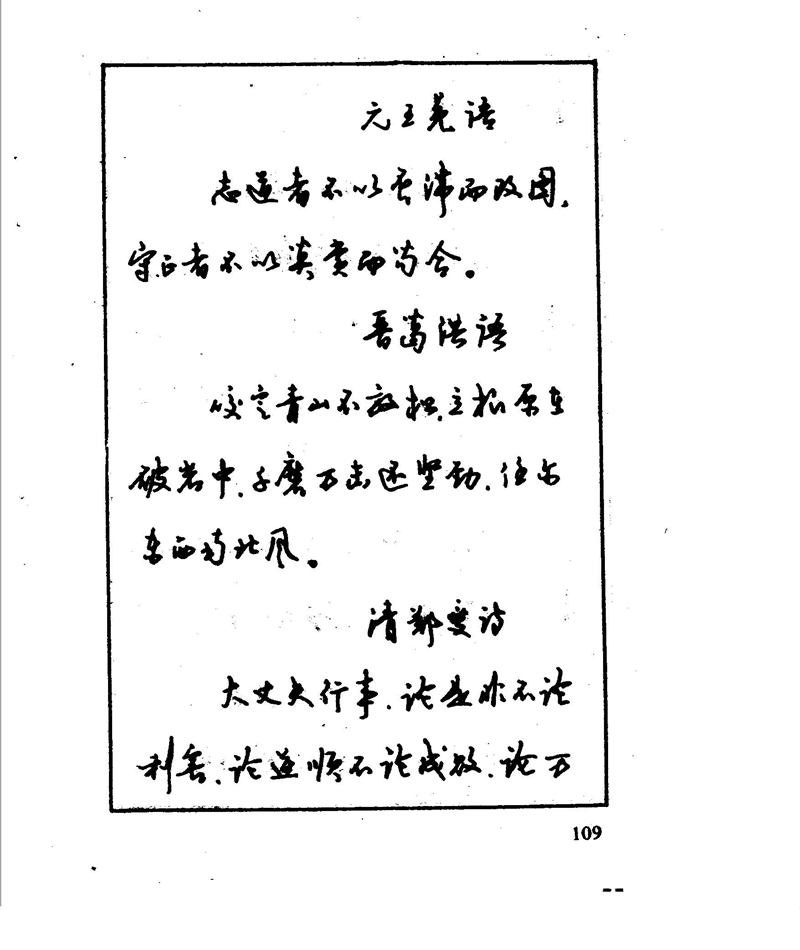 元王冕语
志道者不以否滞而改图，
守正者不以莫赏而苟合。
晋葛洪语
咬定青山不放松，立根原在
破岩中，千磨万击还坚劲，任尔
东西南北风。
清郑燮诗
大丈夫行事，论是非不论
利害，论逆顺不论成败，论万
109